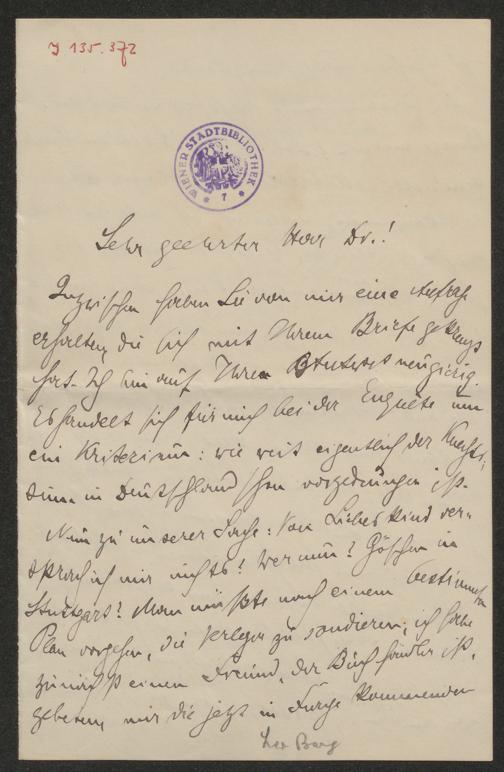 J 135.372
WIENER STADTBIBLIOTHEK
* 7 *
Sehr geehrter Herr Dr.!
Inzwischen haben Sie von mir eine Anfrage
erhalten, die sich mit Ihrem Briefe gekreuzt
hat. Ich bin auf Ihre Antwort neugierig.
Es handelt sich für mich bei der Enquête um
ein Kriterium: wie weit eigentlich der
in Deutschland schon vorgedrungen ist.
Nun zu unserer Sache: Von Liebeskind ver-
sprach ich mir nichts! Wer nun? Göschen in
Stuttgart? Man müsste nach einem bestimmten
Plan vorgehen, die Verleger zu sondieren; ich habe
zunächst einen Freund, der Buchhändler ist,
gebeten, mir die jetzt in Frage kommenden
Leo Berg